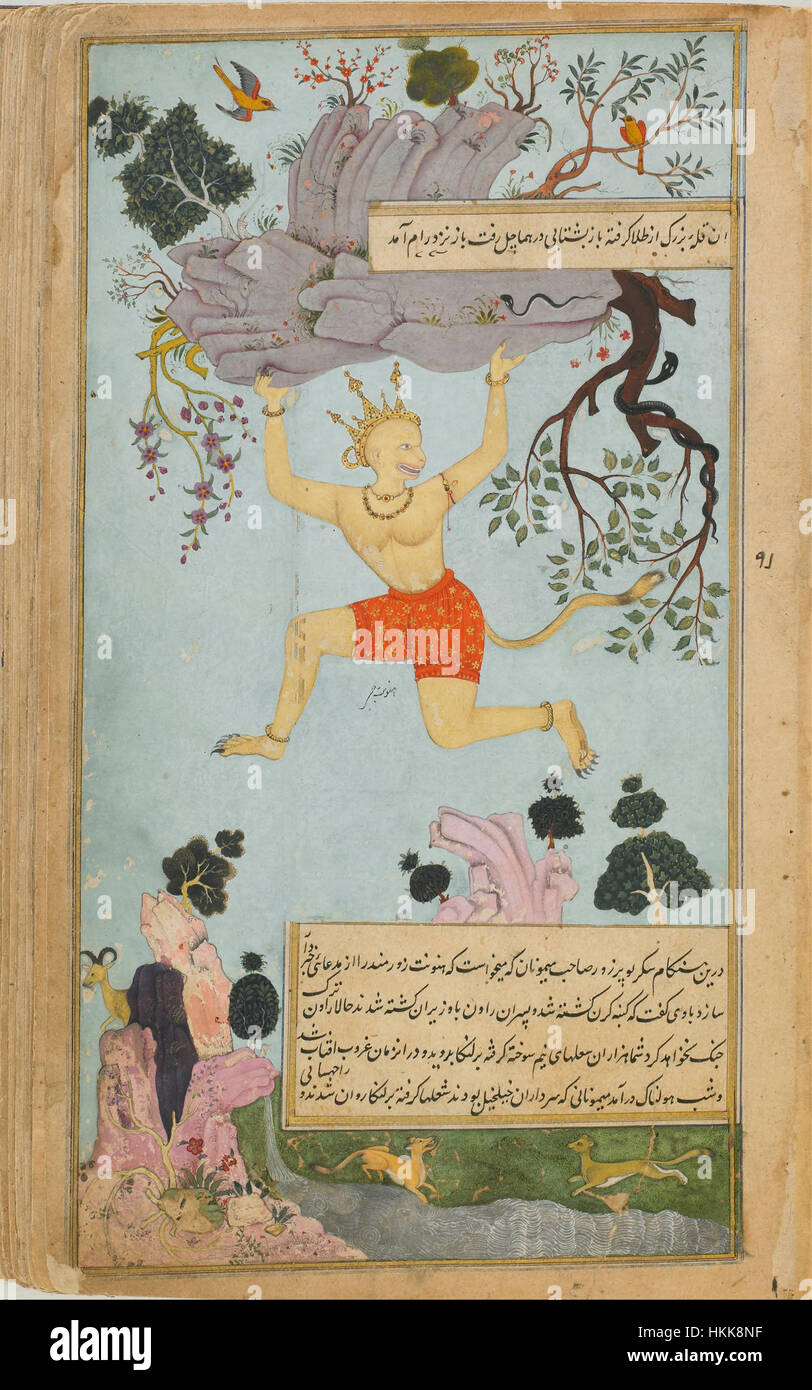 ان قله بزرک از طلا کرفته باز بشتابی در هماچل رفت باز نزد رام آمد
هنونت
۹۸
درین هنکام سکریو پر زور صاحب میمونان که میخواست که هنونت زورمند را از مدعای خبردار
سازد باوی کفت که کنبه کرن کشته شد و پسران راون با وزیران کشته شدند حالا راون ترک
جنک نخواهد کرد شما هزاران شعلهای نیم سوخته کرفته بر لنکا بروید و در انزمان غروب افتاب شد
و شب هولناک درآمد میمونانی که سرداران خیلخیل بودند شعلها کرفته بر لنکا روان شدند و
alamy
Image ID: HKK8NF
www.alamy.com